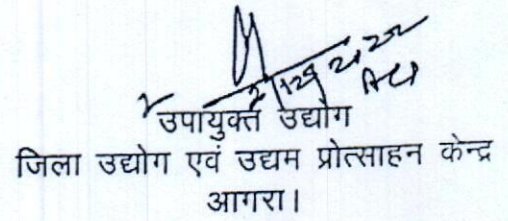 उपायुक्त उद्योग
जिला उद्योग एवं उद्यम प्रोत्साहन केन्द्र
आगरा।